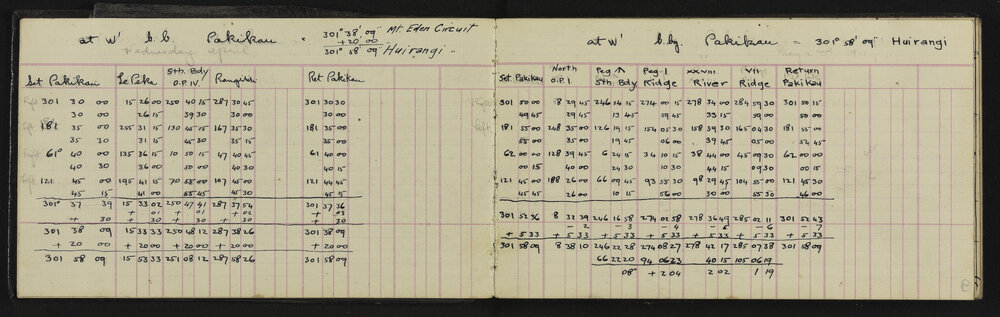 at W' b.b. Pakikau = 301° 38' 09" Mt. Eden Circuit
+20 00
Wednesday April 301° 58' 09" Huirangi
Set Pakikau Le Peka Sth. Bdy O.P. IV. Rangitihi Ret Pakikau
Right 301 30 00 15 26 00 250 40 15 287 30 45 301 30 30
30 00 26 15 39 30 30 00 30 00
left 181 35 00 255 31 15 130 45 15 167 35 30 181 35 00
35 30 31 15 45 30 35 15 35 00
Right 61° 40 00 135 36 15 10 50 15 47 40 45 61 40 00
40 30 36 00 50 00 40 30 40 15
left 121 45 00 195 41 15 70 55 00 107 45 00 121 44 45
45 15 41 00 55 45 45 30 45 15
301° 37 39 15 33 02 250 47 41 287 37 54 301 37 36
+ 01 + 01 + 02 + 03
+ 30 + 30 + 30 + 30 + 30
301 38 09 15 33 33 250 48 12 287 38 26 301 38 09
+ 20 00 + 20 00 + 20 00 + 20 00 + 20 00
301 58 09 15 53 33 251 08 12 287 58 26 301 58 09
at W' b.bg. Pakikau = 301° 58' 09" Huirangi
Set. Pakikau North O.P.I. Peg ↑ Sth. Bdy Peg I Ridge XXVIII River VII Ridge Return Pakikau
Right 301 50 00 8 29 45 246 14 15 274 00 15 278 34 00 284 59 30 301 50 15
49 45 29 45 13 45 59 45 33 15 59 00 50 00
left 181 55 00 248 35 00 126 19 15 154 05 30 158 39 30 165 04 30 181 55 00
55 00 35 00 19 45 06 00 39 45 05 00 54 45
62 00 00 128 39 45 6 24 15 34 10 15 38 44 00 45 09 30 62 00 00
00 15 40 00 24 30 10 30 44 15 09 30 00 15
121 45 00 188 26 00 66 09 45 93 55 30 98 29 45 104 55 00 121 45 30
45 45 26 00 10 15 56 00 30 00 55 30 46 00
301 52 36 8 32 39 246 16 58 274 02 58 278 36 49 285 02 11 301 52 43
- 2 - 3 - 4 - 5 - 6 - 7
+ 5 33 + 5 33 + 5 33 + 5 33 + 5 33 + 5 33 + 5 33
301 58 09 8 38 10 246 22 28 274 08 27 278 42 17 285 07 38 301 58 09
66 22 20 94 06 23 40 15 105 06 19
08" + 2 04 2 02 1 19